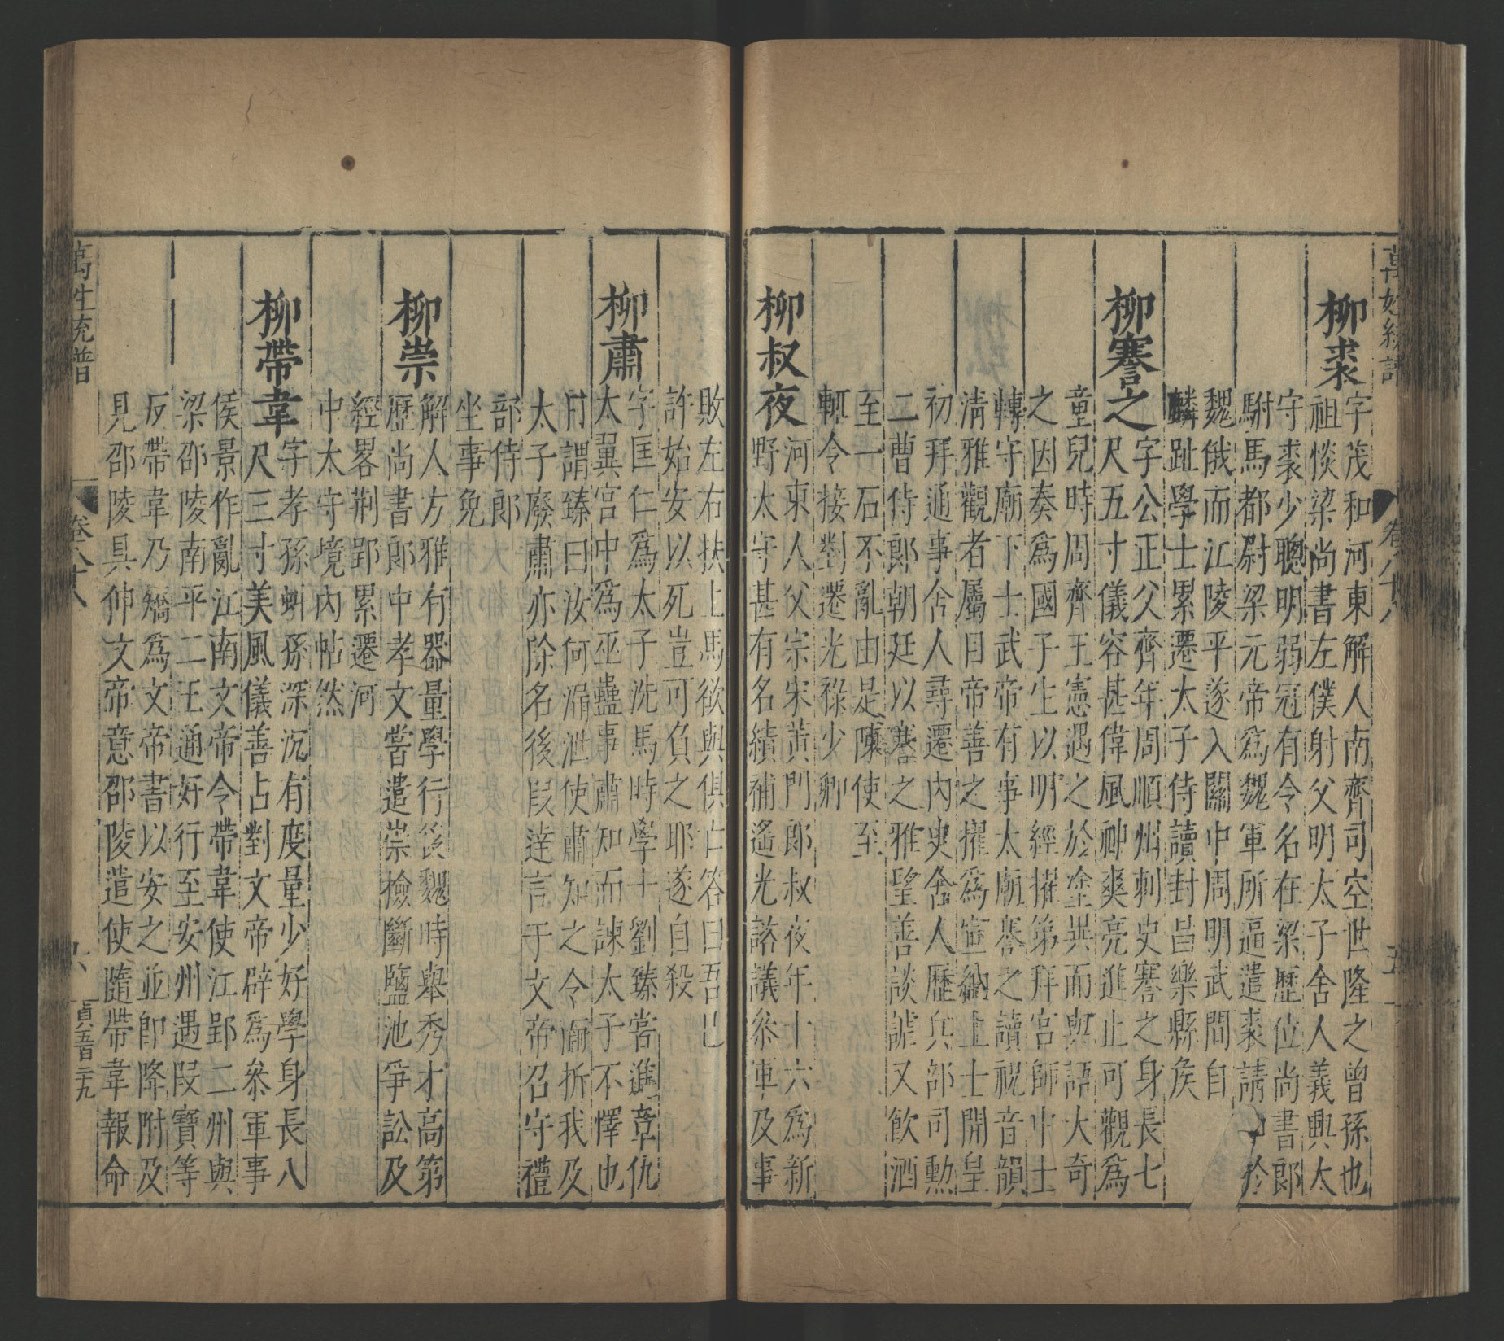 萬姓統譜
卷八十八
五
柳裘
字茂和河東解人南齊司空世隆之曾孫也
祖惔梁尚書左僕射父明太子舍人義興太
守裘少聰明弱冠有令名在梁歷位尚書郎
駙馬都尉梁元帝為魏軍所逼遣裘請和於
魏俄而江陵平遂入關中周明武間自
麟趾學士累遷太子侍讀封昌樂縣侯
柳謇之
字公正父齊年周順州刺史謇之身長七
尺五寸儀容甚偉風神爽亮進止可觀為
童兒時周齊王憲遇之於塗異而與語大奇
之因奏為國子生以明經擢第拜宮師中士
轉守廟下士武帝有事太廟謇之讀祝音韻
清雅觀者屬目帝善之擢為宣納上士開皇
初拜通事舍人尋遷內史舍人歷兵部司勳
二曹侍郎朝廷以謇之雅望善談謔又飲酒
至一石不亂由是陳使至
輒令接對遷光祿少卿
柳叔夜
河東人父宗宋黃門郎叔夜年十六為新
野太守甚有名績補遙光諮議參軍及事
敗左右扶上馬欲與俱亡答曰吾已
許始安以死豈可負之耶遂自殺
柳肅
字匡仁為太子洗馬時學士劉臻嘗進章仇
太翼宮中為巫蠱事肅知而諫太子不懌也
日謂臻曰汝何漏泄使肅知之令面折我及
太子廢肅亦除名後叚達言于文帝召守禮
部侍郎
坐事免
柳崇
解人方雅有器量學行後魏時舉秀才高第
歷尚書郎中孝文嘗遣崇撿斷鹽池爭訟及
經畧荆郢累遷河
中太守境內帖然
柳帶韋
字孝孫蚪孫深沉有度量少好學身長八
尺三寸美風儀善占對文帝辟為參軍事
侯景作亂江南文帝令帶韋使江郢二州與
梁邵陵南平二王通好行至安州遇叚寶等
反帶韋乃矯為文帝書以安之並即降附及
見邵陵具伸文帝意邵陵遣使隨帶韋報命
萬姓統譜
卷八十八
六